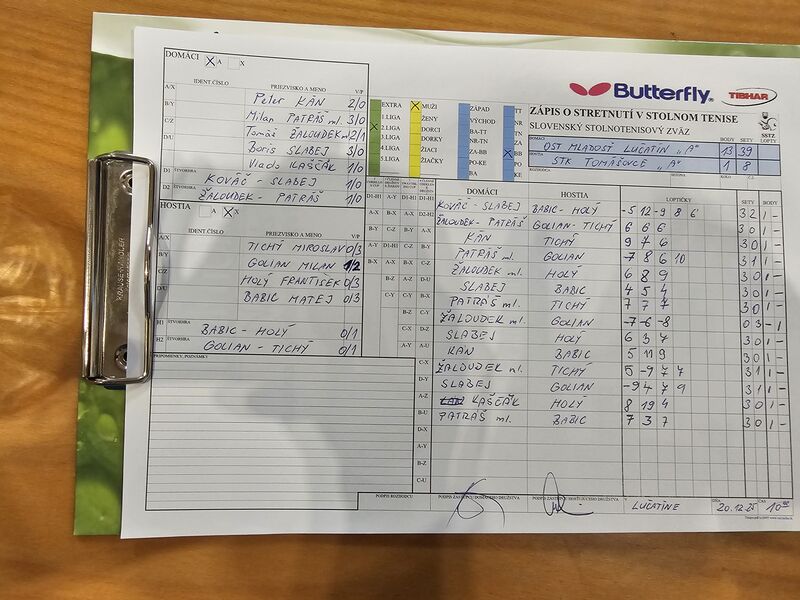 DOMÁCI X A X
IDENT.ČÍSLO PRIEZVISKO A MENO V/P
A/X Peter KÁN 2/0
B/Y Milan PATRÁŠ ml. 3/0
C/Z Tomáš ŽALOUDEK ml. 2/1
D/U Boris SLABEJ 3/0
Vlado KAŠČÁK 1/0
D1 ŠTVORHRA KOVÁČ - SLABEJ 1/0
D2 ŽALOUDEK - PATRÁŠ 1/0
HOSTIA A X X
IDENT.ČÍSLO PRIEZVISKO A MENO V/P
A/X TICHÝ MIROSLAV 0/3
B/Y GOLIAN MILAN 1/2
C/Z HOLÝ FRANTIŠEK 0/3
D/U BABIC MATEJ 0/3
H1 ŠTVORHRA BABIC - HOLÝ 0/1
H2 ŠTVORHRA GOLIAN - TICHÝ 0/1
PRIPOMIENKY, POZNÁMKY
Butterfly
TIBHAR
EXTRA X MUŽI ZÁPAD TT
1.LIGA ŽENY VÝCHOD NR
X 2.LIGA DORCI BA-TT TN
3.LIGA DORKY NR-TN ZA
4.LIGA ŽIACI ZA-BB X BB
5.LIGA ŽIAČKY PO-KE PO
BA KE
ZÁPIS O STRETNUTÍ V STOLNOM TENISE
SLOVENSKÝ STOLNOTENISOVÝ ZVÄZ
SSTZ
BODY SETY LOPTY
DOMÁCI OST MLADOSŤ LUČATÍN "A" 13 39
HOSTIA STK TOMÁŠOVCE "A" 1 8
ROZHODCA SEZÓNA KOLO Č.
DOMÁCI HOSTIA LOPTIČKY SETY BODY
KOVÁČ - SLABEJ BABIC - HOLÝ -5 12 -9 8 6 3 2 1 -
ŽALOUDEK - PATRÁŠ GOLIAN - TICHÝ 6 6 6 3 0 1 -
KÁN TICHÝ 9 7 6 3 0 1 -
PATRÁŠ ml. GOLIAN -7 8 6 10 3 1 1 -
ŽALOUDEK ml. HOLÝ 6 8 9 3 0 1 -
SLABEJ BABIC 4 5 4 3 0 1 -
PATRÁŠ ml. TICHÝ 7 7 7 3 0 1 -
ŽALOUDEK ml. GOLIAN -7 -6 -8 0 3 - 1
SLABEJ HOLÝ 6 3 7 3 0 1 -
KÁN BABIC 5 11 9 3 0 1 -
ŽALOUDEK ml. TICHÝ 5 -9 7 7 3 1 1 -
SLABEJ GOLIAN -9 4 7 9 3 1 1 -
KAŠČÁK HOLÝ 8 19 4 3 0 1 -
PATRÁŠ ml. BABIC 7 3 7 3 0 1 -
PODPIS ROZHODCU PODPIS ZÁSTUPCU DOMÁCEHO DRUŽSTVA PODPIS ZÁSTUPCU HOSŤUJÚCEHO DRUŽSTVA V LUČATÍNE DŇA 20.12.25 ČAS 10 00